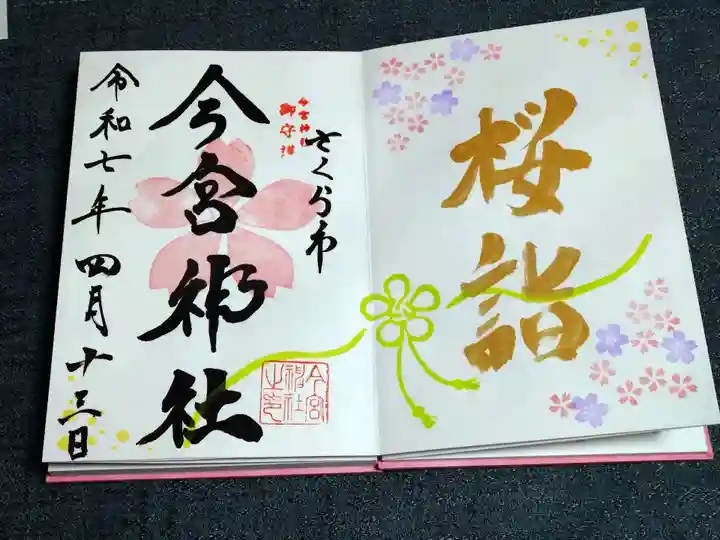 桜詣
さくら市
今宮神社
御守護
今宮神社
令和七年四月十三日
今宮
神社
之印